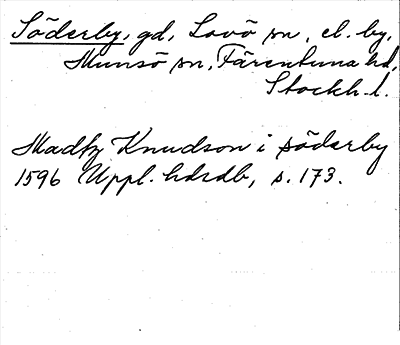 Söderby, gd, Lovö sn, el. by,
Munsö sn, Färentuna hd,
Stockh. l.
Madtz Knudson i Söderby
1596 Uppl. hdrdb, s. 173.